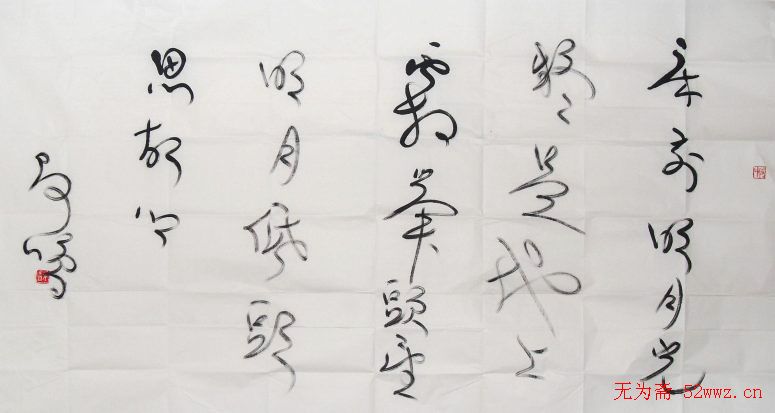 床前明月光
疑是地上
霜舉頭望
明月低頭
思故鄉
无为斋 52wwz.cn